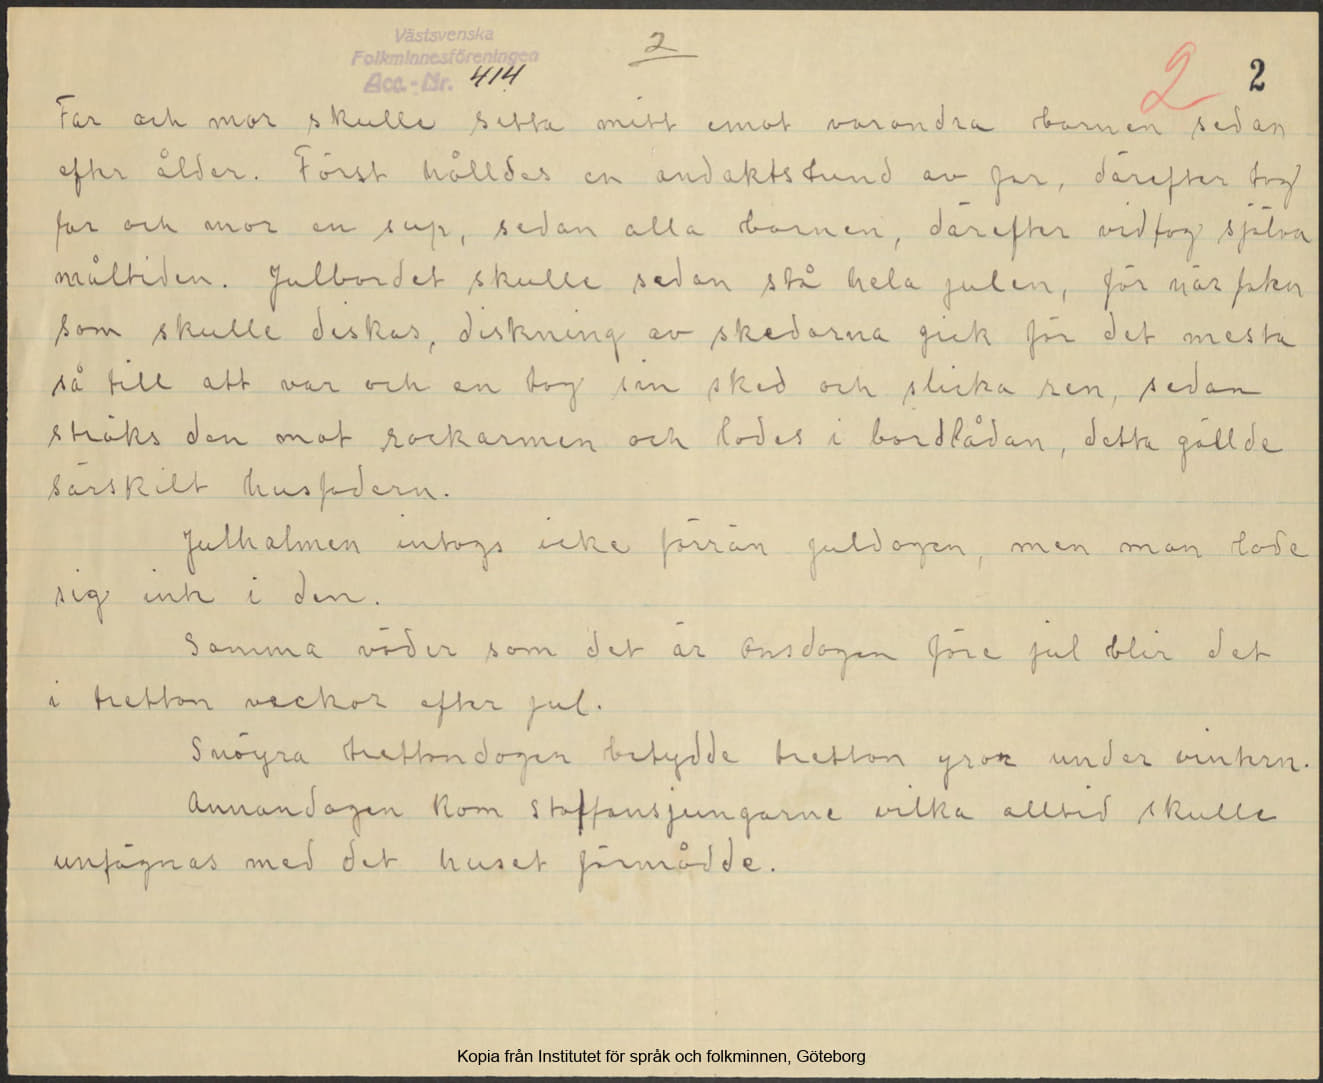 Västsvenska
Folkminnesföreningen
Acc.-Nr. 414
2
2
2
Far och mor skulle sitta mitt emot varandra barnen sedan
efter ålder. Först hålldes en andaktstund av far, därefter tog
far och mor en sup, sedan alla barnen, därefter vidtog själva
måltiden. Julbordet skulle sedan stå hela julen, för när faten
som skulle diskas, diskning av skedarna gick för det mesta
så till att var och en tog sin sked och slicka ren, sedan
ströks den mot rockarmen och lades i bordlådan, detta gällde
särskilt husfadern.
Julhalmen intogs icke förrän juldagen, men man lade
sig inte i den.
Samma väder som det är onsdagen före jul blir det
i tretton veckor efter jul.
Snöyra trettondagen betydde tretton yror under vintern.
Annandagen kom staffansjungarne vilka alltid skulle
unfägnas med det huset förmådde.
Kopia från Institutet för språk och folkminnen, Göteborg